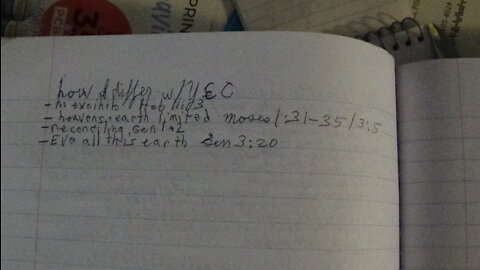 how I differ w/YEC
- no exnihilo Heb 11:3
- heavens, earth limited moses 1:31-35/3:5
- reconciling Gen 1+2
- Eve all this earth Gen 3:20